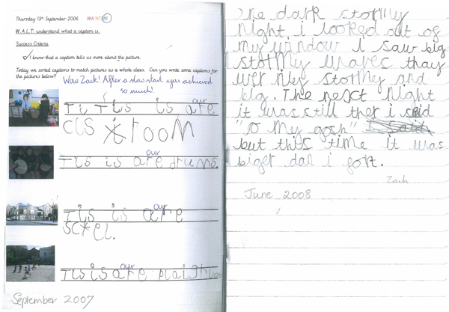 Thursday 13th September 2006
W.A.L.T. understand what a caption is.
Success Criteria
✓ I know that a caption tells us more about the picture.
Today we sorted captions to match pictures as a whole class. Can you write some captions for
the pictures below?
Wow Zack! After a slow start you achieved
so much!
our
Tis is are
clsxroom
our
Tis is are drums.
our
Tis is are
scxel.
our
Tis is are
September 2007
The dark stormy
night i looked out of
my window I saw big
stormy waves thay
wer very stormey and
big. The next night
it was still ther i said
"o my gosh"
but this time it was
biger dan i fort.
Zack
June 2008